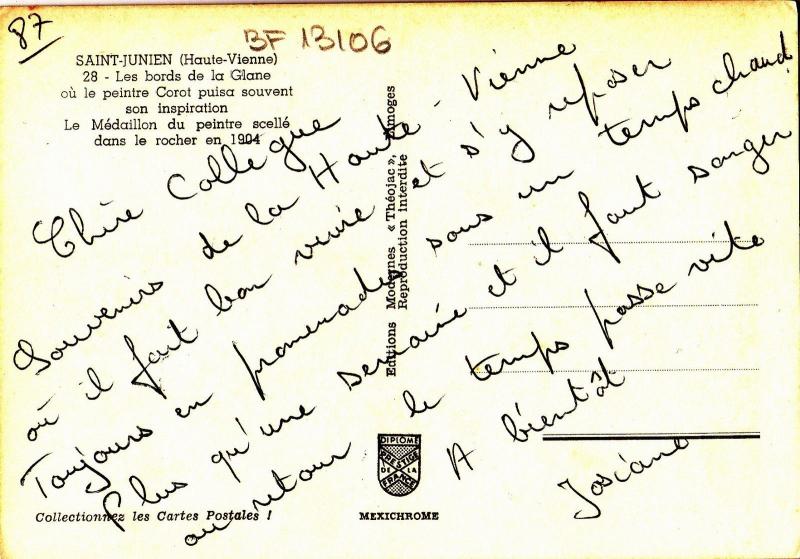 87
BF 13106
SAINT-JUNIEN (Haute-Vienne)
28 - Les bords de la Glane
où le peintre Corot puisa souvent
son inspiration
Le Médaillon du peintre scellé
dans le rocher en 1904
Chère Collègue
Souvenirs de la Haute-Vienne
où il fait bon vivre et s'y reposer
Toujours en promenades sous un temps chaud
Plus qu'une semaine et il faut songer
au retour le temps passe vite
A bientôt
Josiane
Editions Modernes « Théojac », Limoges
Reproduction interdite
DIPLOME
PRESTIGE
DE LA
FRANCE
Collectionnez les Cartes Postales !
MEXICHROME